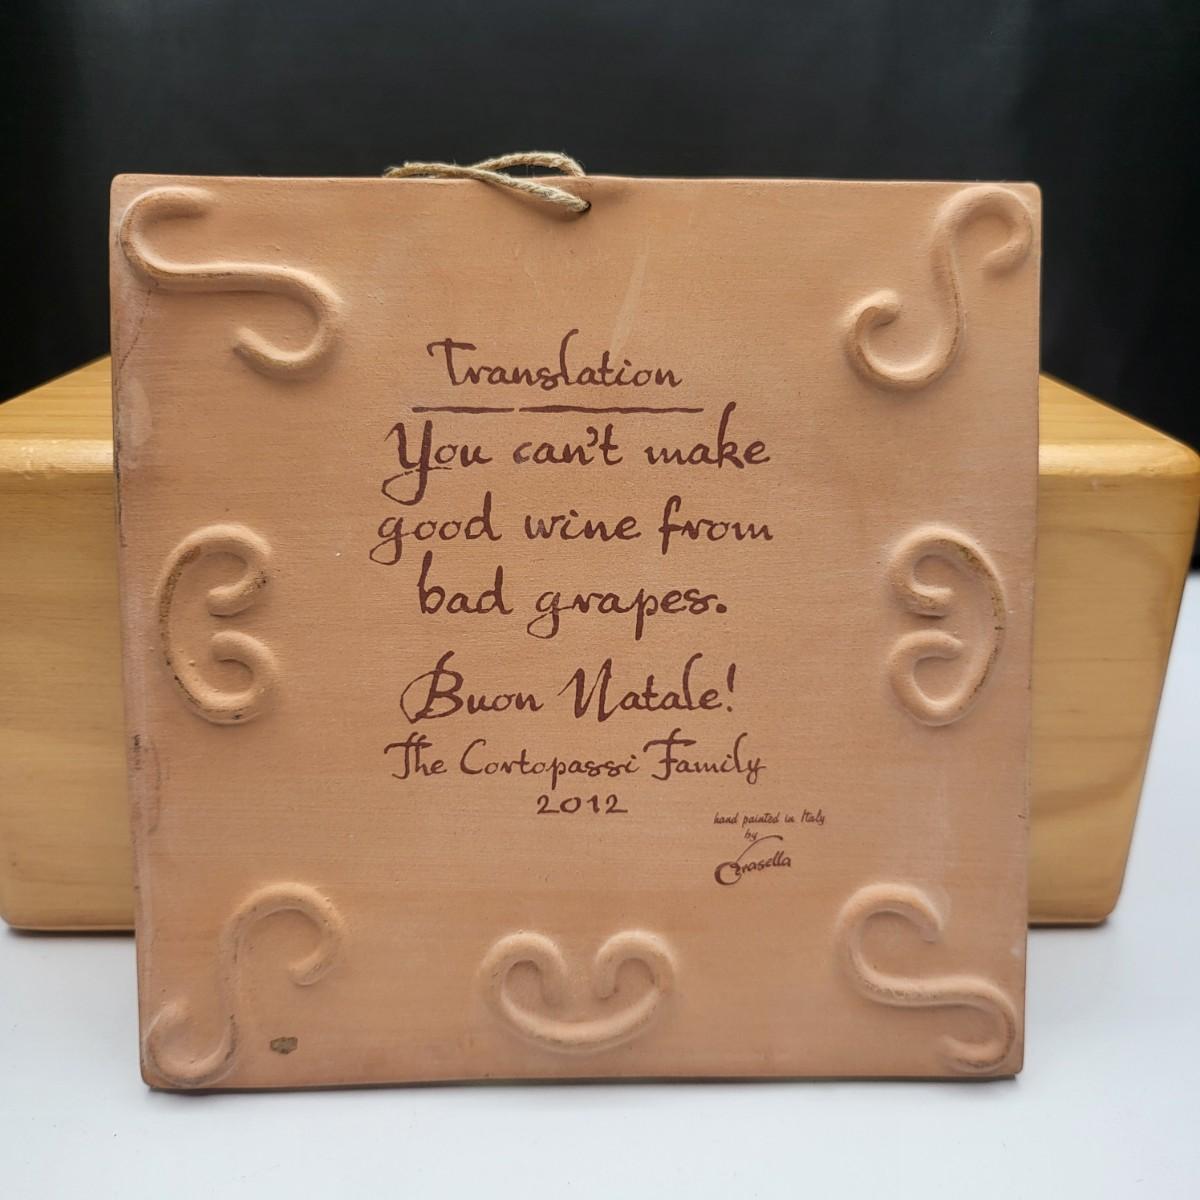 Translation
You can't make
good wine from
bad grapes.
Buon Natale!
The Cortopassi Family
2012
hand painted in Italy
by
Cerasella